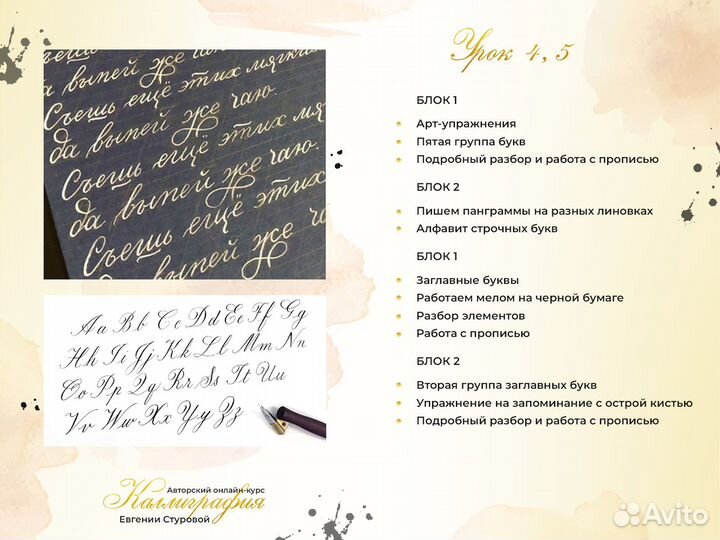 Урок 4, 5
ещё этих мягких
да выпей же чаю.
Съешь ещё этих мягких
да выпей же чаю.
Съешь ещё этих
да выпей же чаю.
Съешь ещё этих
выпей же
БЛОК 1
Арт-упражнения
Пятая группа букв
Подробный разбор и работа с прописью
БЛОК 2
Пишем панграммы на разных линовках
Алфавит строчных букв
БЛОК 1
Заглавные буквы
Работаем мелом на черной бумаге
Разбор элементов
Работа с прописью
БЛОК 2
Вторая группа заглавных букв
Упражнение на запоминание с острой кистью
Подробный разбор и работа с прописью
Aa Bb Cc Dd Ee Ff Gg
Hh Ii Jj Kk Ll Mm Nn
Oo Pp Qq Rr Ss Tt Uu
Vv Ww Xx Yy Zz
Авторский онлайн-курс
Каллиграфия
Евгении Стуровой
Avito